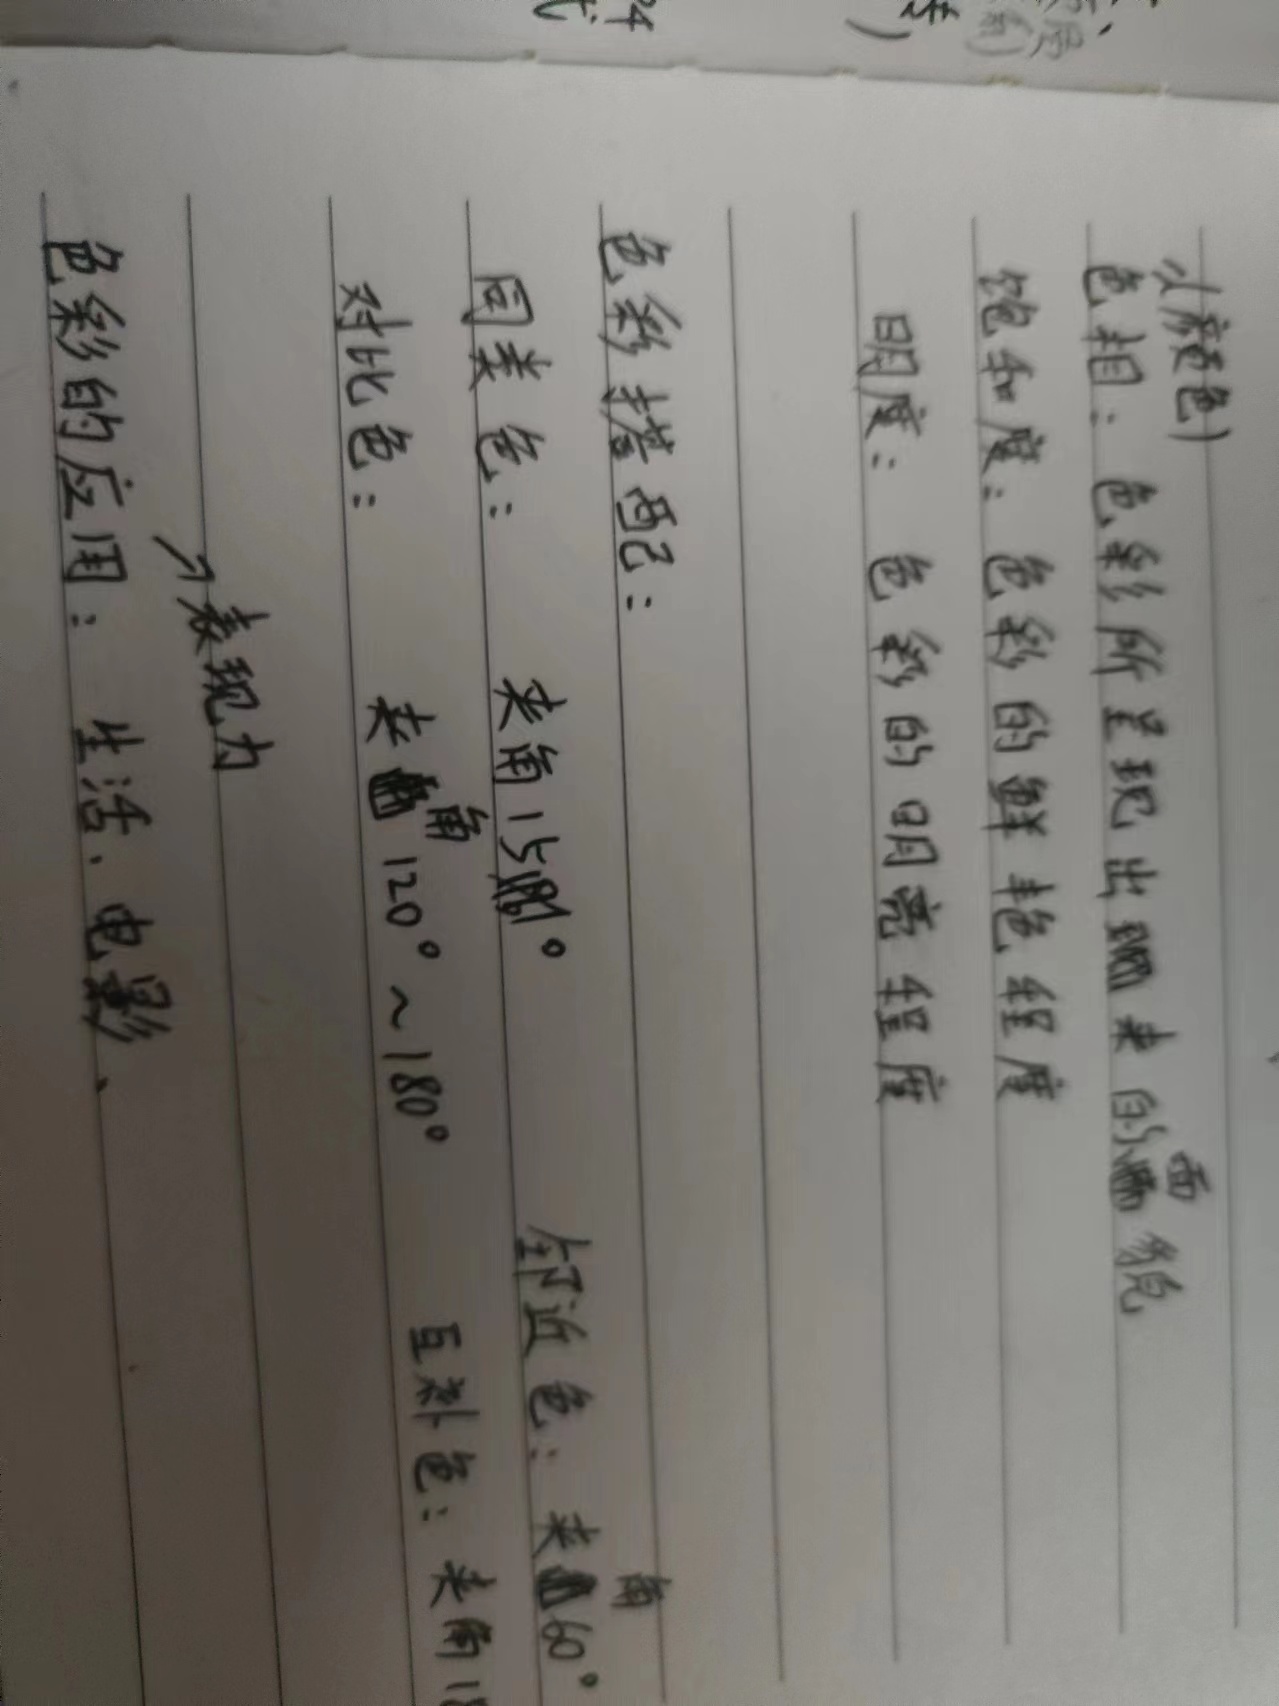 以颜色)
色相：色彩所呈现出来的面貌
饱和度：色彩的鲜艳程度
明度：色彩的明亮程度
色彩搭配：
同类色：夹角15° 邻近色：夹角60°
对比色：夹角120°~180° 互补色：夹角18
↗表现力
色彩的应用：生活、电影、